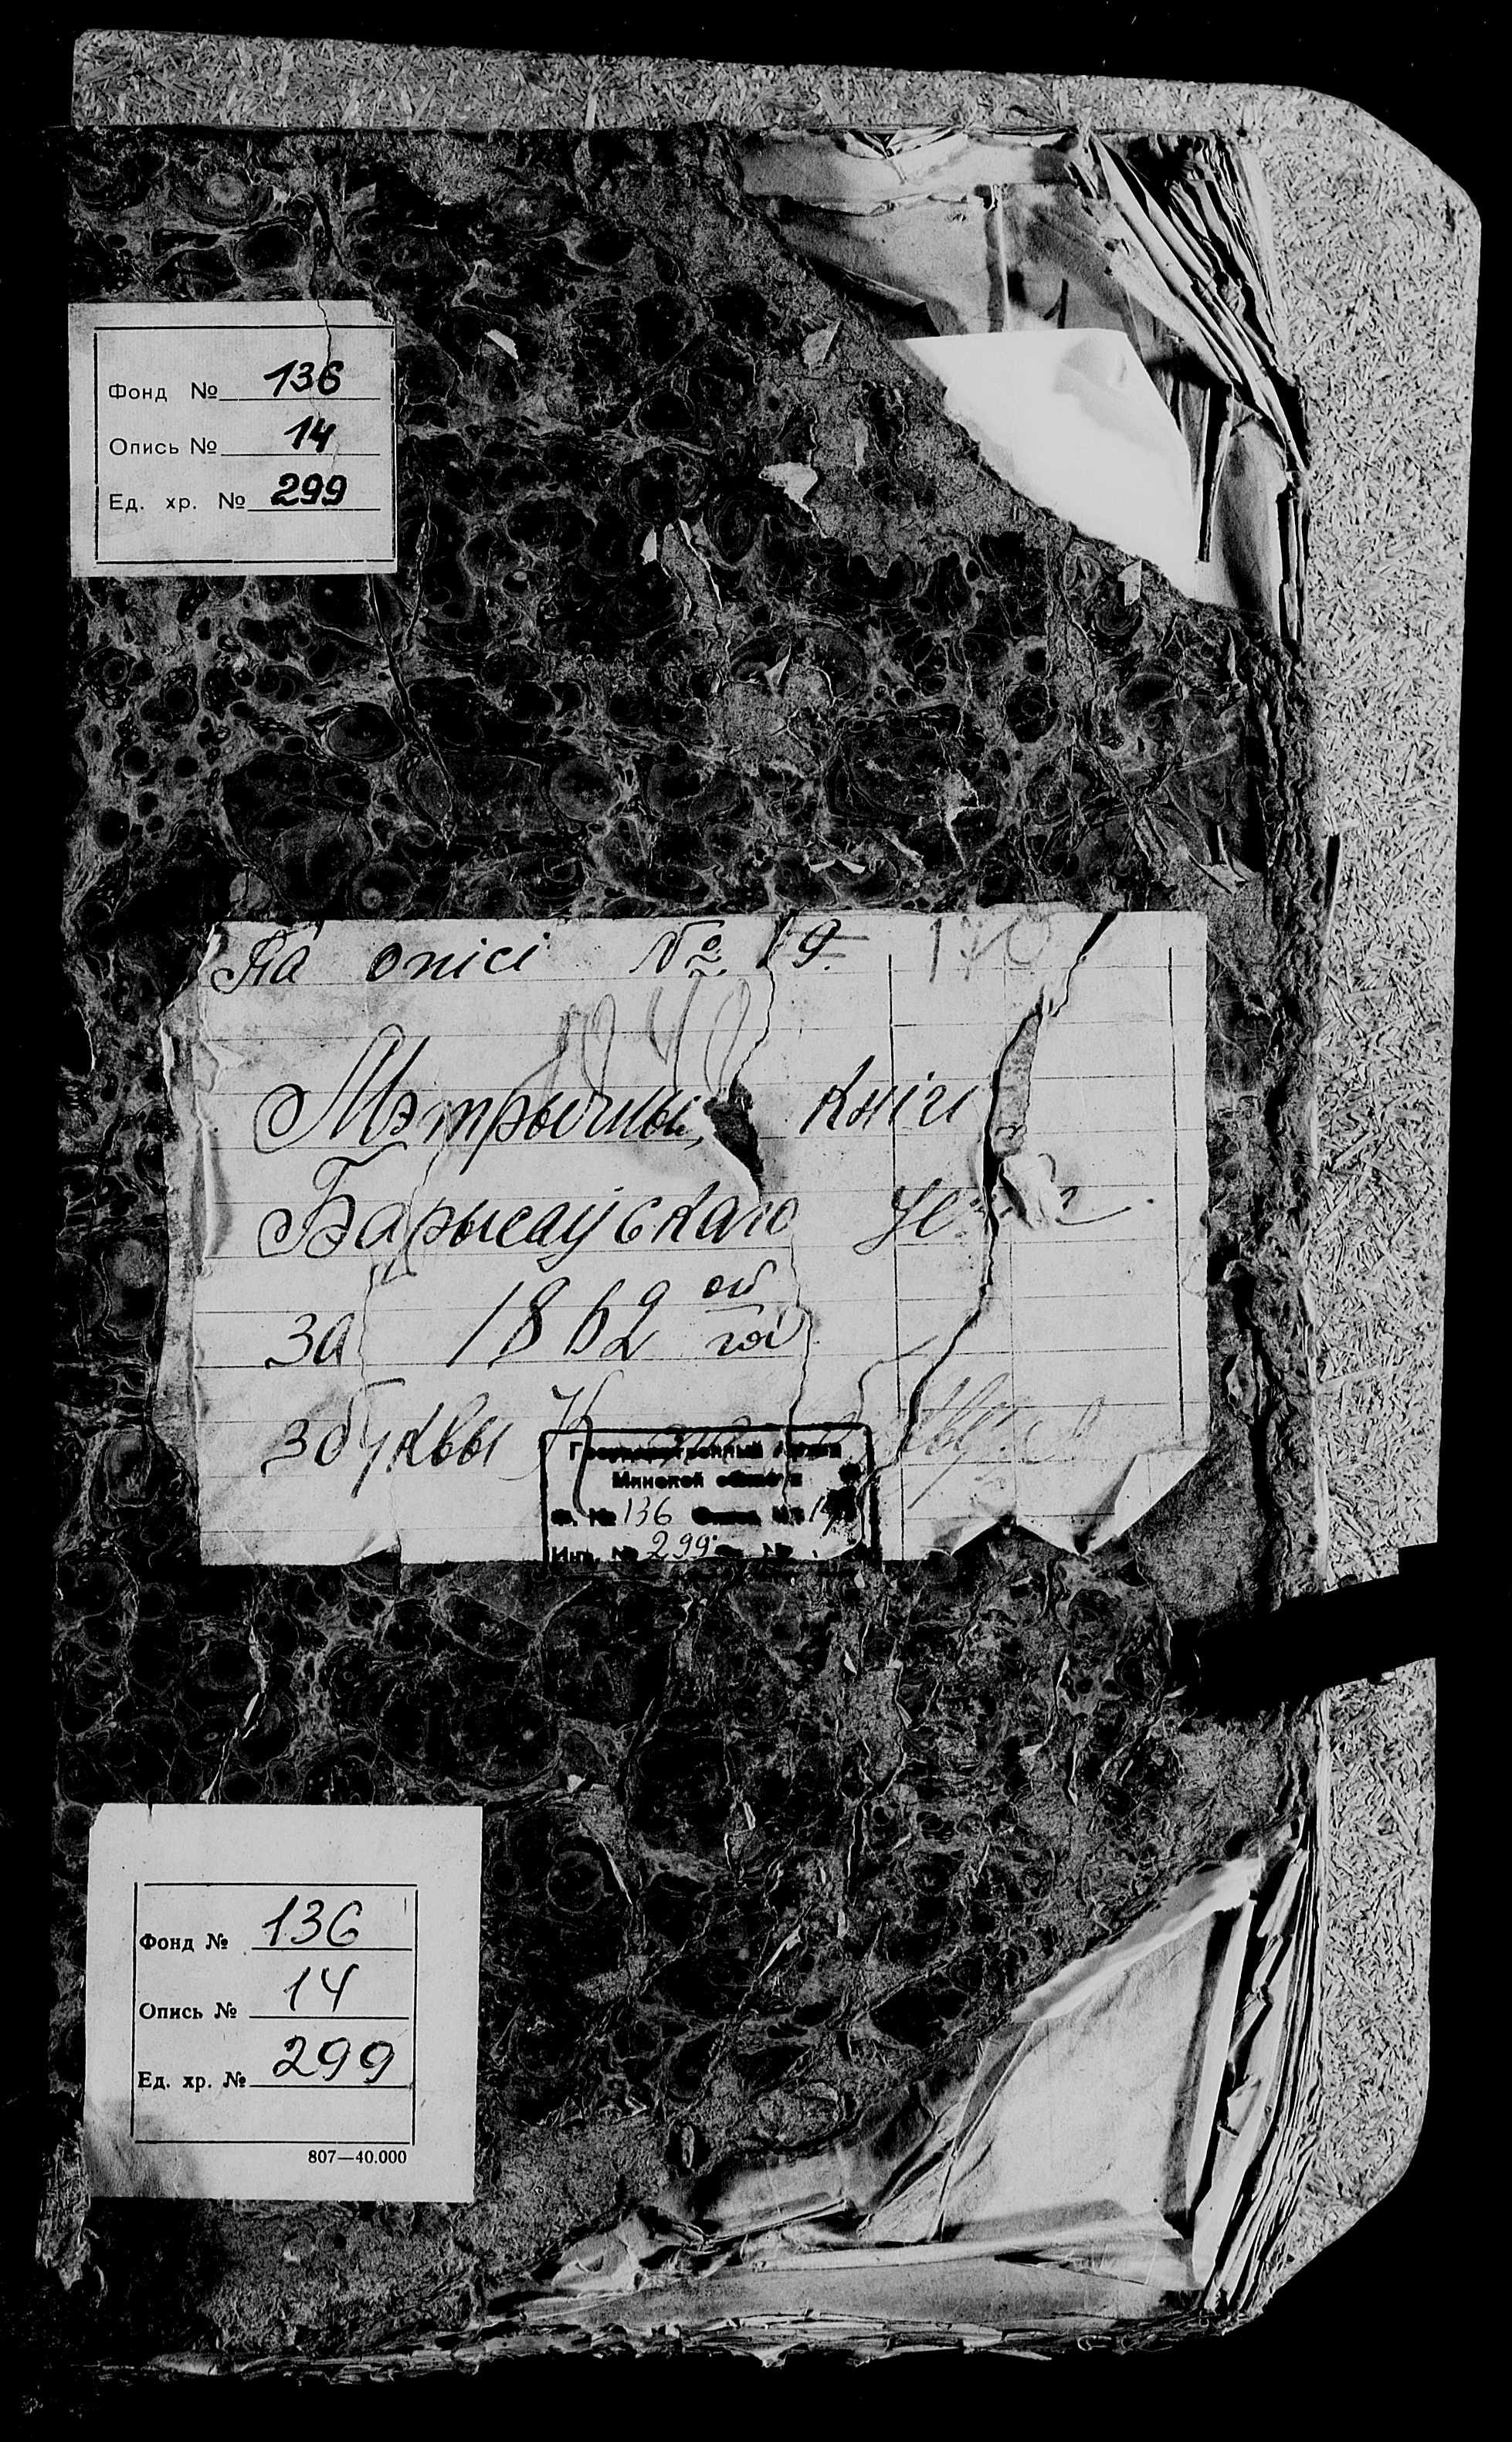 Фонд № 136
Опись № 14
Ед. хр. № 299
Па опісі № 19. 170
Мэтрычныя кнігі
Барысаўскаго
за 1862 ой год
з буквы К
Государственный Архив
Минской области
Ф. № 136 Опись № 14
Инв. № 299
Фонд № 136
Опись № 14
Ед. хр. № 299
807—40.000